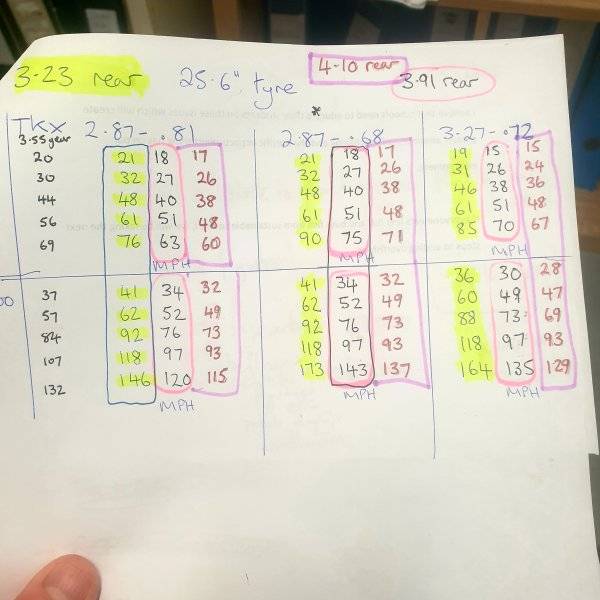 3.23 rear 25.6" tyre 4-10 rear 3.91 rear
*
TKX 2.87 - .81 2.87 - .68 3.27 - .72
3.55 gear
20 21 18 17 21 18 17 19 15 15
30 32 27 26 32 27 26 31 26 24
44 48 40 38 48 40 38 46 38 36
56 61 51 48 61 51 48 61 51 48
69 76 63 60 90 75 71 85 70 67
MPH MPH MPH
37 41 34 32 41 34 32 36 30 28
57 62 52 49 62 52 49 60 49 47
84 92 76 73 92 76 73 88 73 69
107 118 97 93 118 97 93 118 97 93
132 146 120 115 173 143 137 164 135 129
MPH MPH MPH